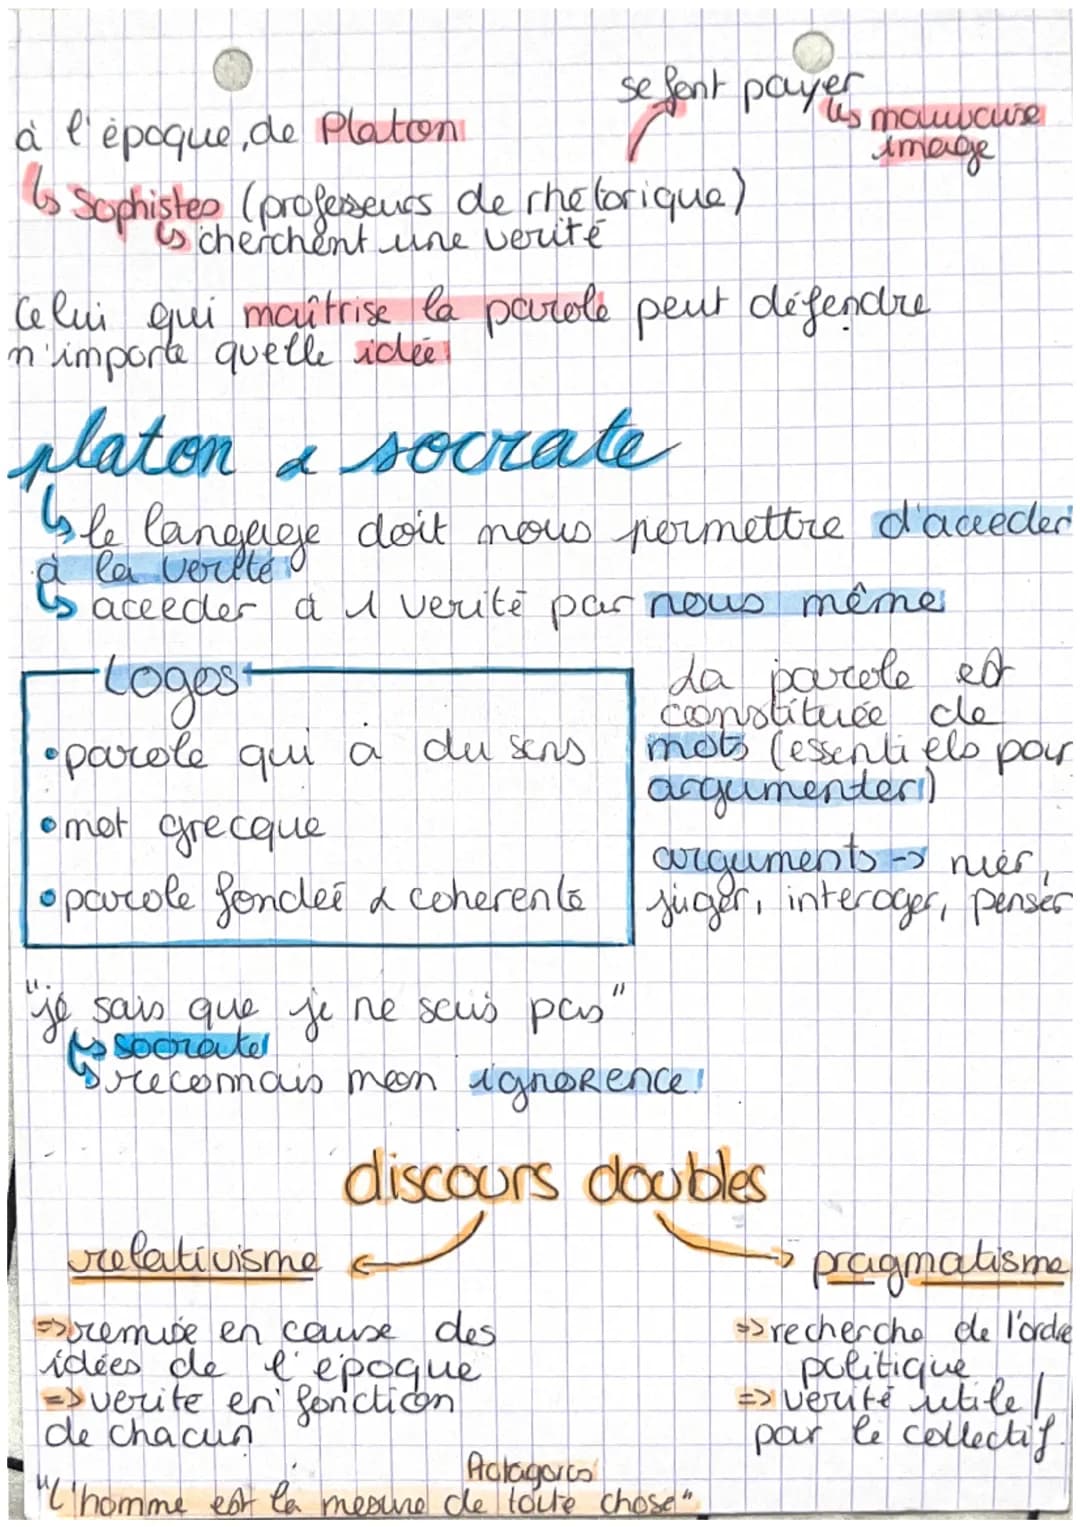 se font payer
↳ mauvaise
image
à l'époque, de Platon
↳ Sophistes (professeurs de rhétorique)
↳ cherchent une verité
Celui qui maîtrise la parole peut défendre
n'importe quelle idée
platon & socrate
↳ le langage doit nous permettre d'acceder
à la verité
↳ acceder à 1 verité par nous même
Logos
• parole qui à du sens
• mot grecque
• parole fondeé & coherente
La parole est
constituée de
mots (essentiels pour
argumenter)
arguments -> nier,
juger, interoger, penser
"je sais que je ne sais pas"
↳ socrate
↳ reconnais mon ignorence
discours doubles
relativisme
=> remise en cause des
idées de l'époque
=> verite en fonction
de chacun
pragmatisme
=> recherche de l'ordre
politique
=> verité utile
par le collectif.
Protagoras
"L'homme est la mesure de toute chose"